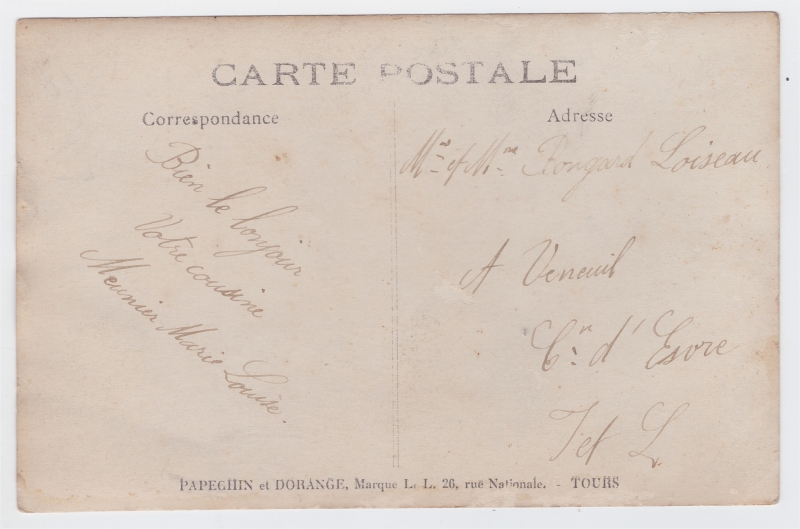 CARTE POSTALE
Correspondance
Bien le bonjour
Votre cousine
Meunier Marie Louise.
Adresse
Mr et Mme Rougard Loiseau
A Veneuil
Cn d'Esvre
I et L
PAPEGHIN et DORANGE, Marque L. L. 26, rue Nationale. - TOURS